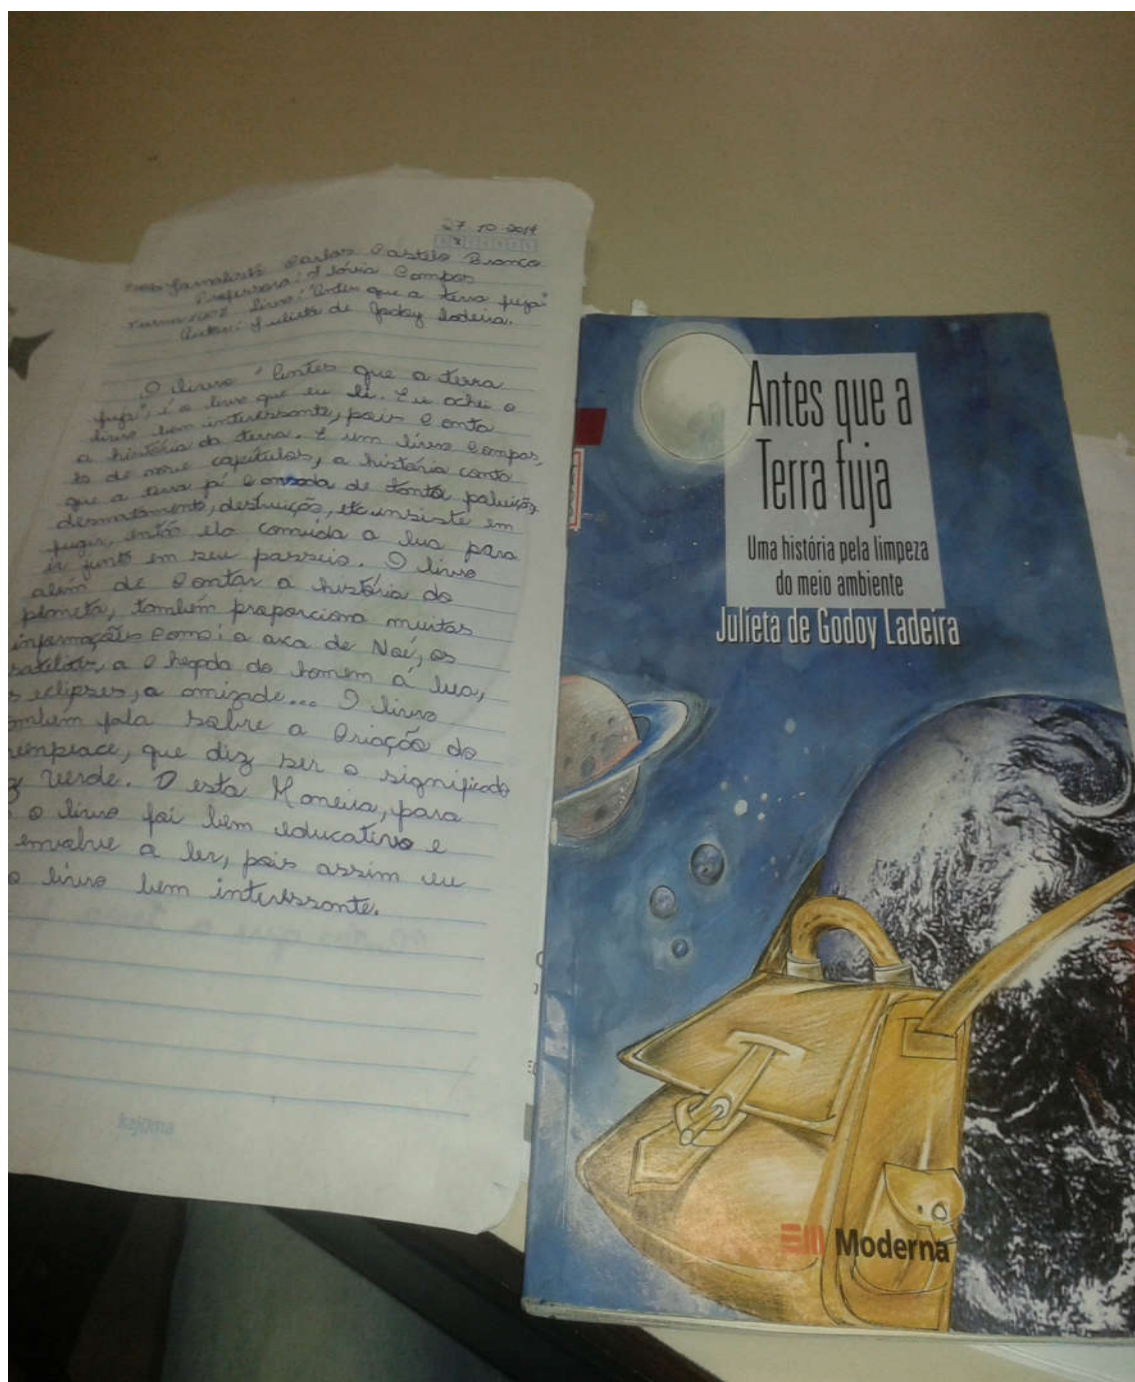 27-10-2014
Jornalista Carlos Castelo Branco
Professora: Flávia Campos
Turma 1002 livro: "Antes que a terra fuja"
Autor: Julieta de Godoy Ladeira.
O livro "Antes que a terra
fuja", é o livro que eu li. Eu achei o
livro bem interessante, pois conta
a história da terra. É um livro compos,
to de nove capítulos, a história conta
que a terra já cansada de tanta poluição,
desmatamento, destruição, etc insiste em
fugir, então ela convida a lua para
ir junto em seu passeio. O livro
além de contar a história do
planeta, também proporciona muitas
informações como: a arca de Noé, os
satélites, a chegada do homem à lua,
s eclipses, a amizade... O livro
ambém fala sobre a criação do
reenpeace, que diz ser o significado
z verde. D esta Maneira, para
o livro foi bem educativo e
envolve a ler, pois assim eu
o livro bem interessante.
kajoma
Antes que a
Terra fuja
Uma história pela limpeza
do meio ambiente
Julieta de Godoy Ladeira
Moderna